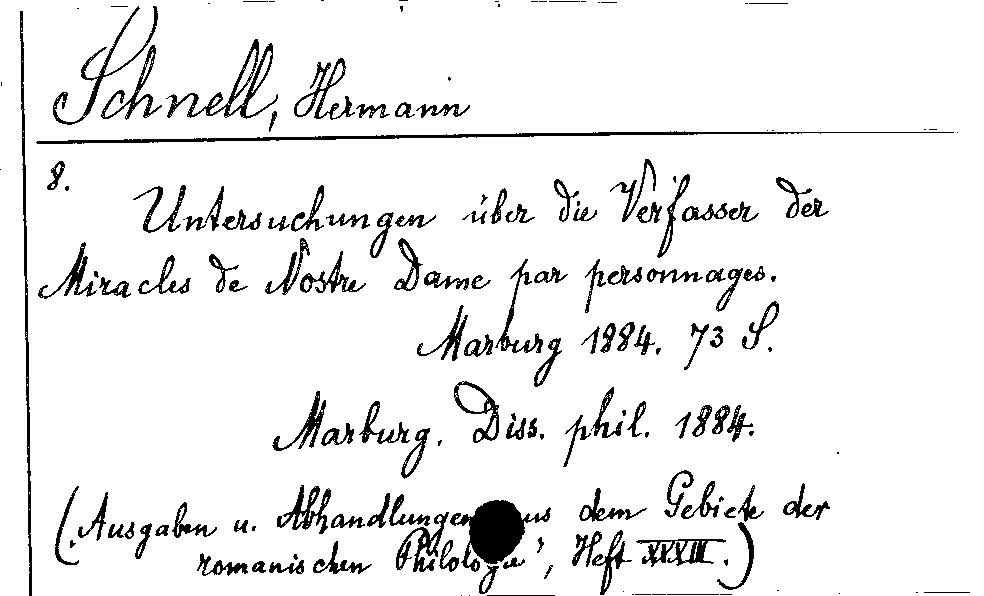 Schnell, Hermann
8.
Untersuchungen über die Verfasser der
Miracles de Nostre Dame par personnages.
Marburg 1884. 73 S.
Marburg. Diss. phil. 1884.
(„Ausgaben u. Abhandlungen aus dem Gebiete der
romanischen Philologie", Heft XXXIII.)